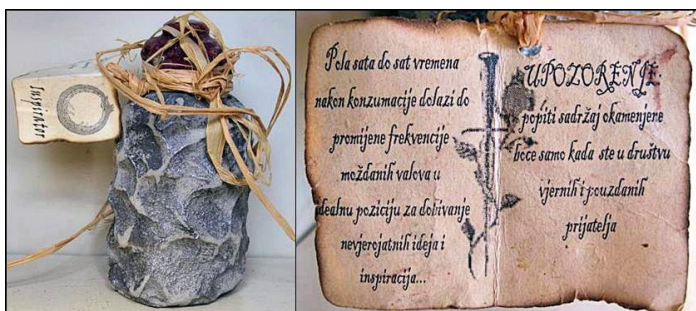 Inspirator
Pola sata do sat vremena
nakon konzumacije dolazi do
promijene frekvencije
moždanih valova u
idealnu poziciju za dobivanje
nevjerojatnih ideja i
inspiracija...
UPOZORENJE:
popiti sadržaj okamenjene
boce samo kada ste u društvu
vjernih i pouzdanih
prijatelja